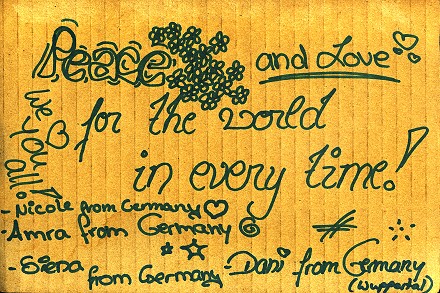 Peace and Love
for the world
in every time!
we ♡ you all!
- Nicole from Germany ♡
- Amra from Germany
- Siena from Germany
- Dani from Germany
(Wuppertal)